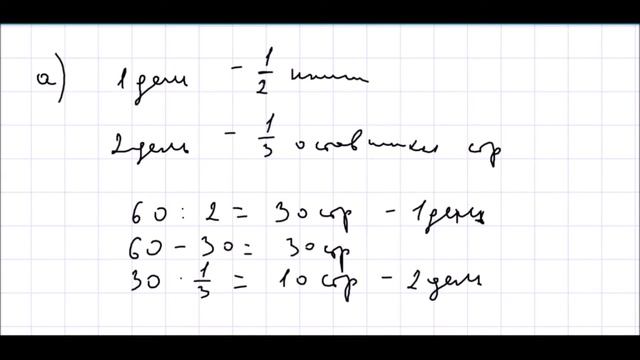 а) 1 день - 1/2 книги
2 день - 1/3 оставшихся стр
60 : 2 = 30 стр - 1 день
60 - 30 = 30 стр
30 · 1/3 = 10 стр - 2 день